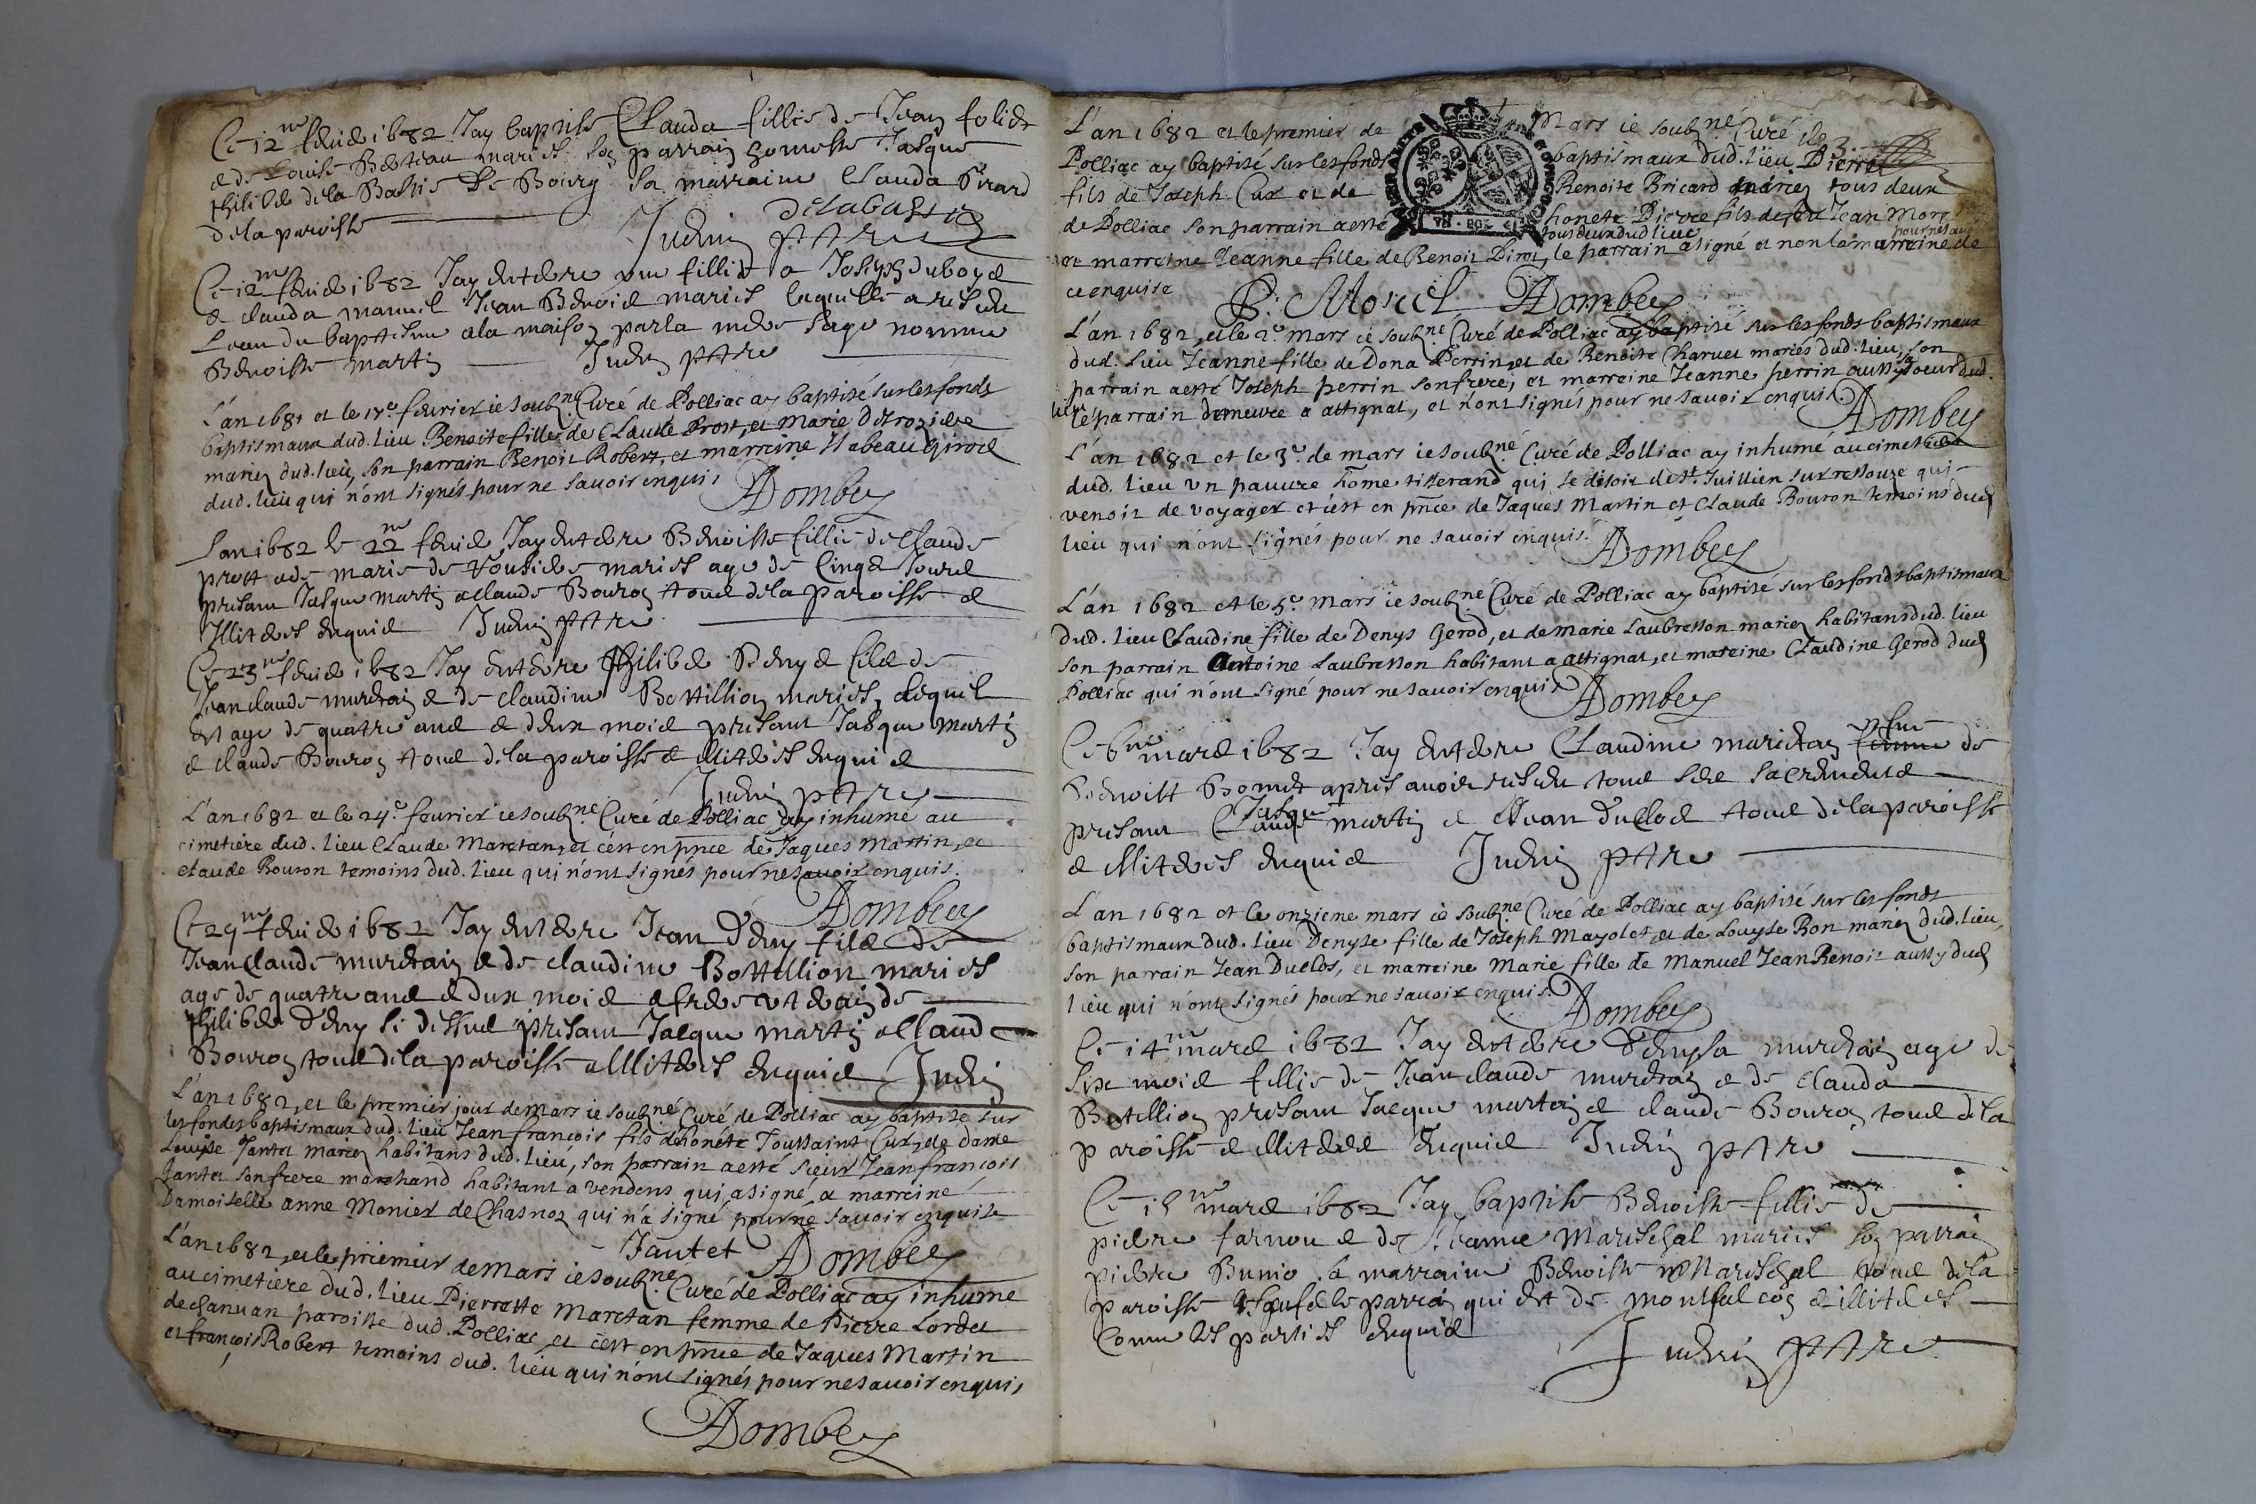 Ce 12me feurier 1682 Jay baptise Clauda fillie de Jean folier
e de Louise Berteau maries son parrain honneste Jasque
philibe de la Bastie de Bourg sa marraine Clauda Pirard
de la paroisse
delabastie
Judrin ptre
Ce 12me feurie 1682 Jay enterre une fillie a Joseph duboy e
e clauda manuel Jean Benoit maries laquelle a reseu
Leau du baptesme a la maison par la mere sage nommee
Benoiste martin Judrin ptre
L'an 1681 et le 17e feurier ie soubne Curé de Polliac ay baptisé sur les fonds
baptismaux dud. lieu Benoite fille de Claude Prost, et Marie
mariez dud. lieu, son parrain Benoit Robert, et marreine Isabeau Girod
dud. lieu qui n'ont signés pour ne savoir enquis
ADombey
Lan 1682 le 22me feurie Jay enterre Benoiste fillie de Claude
prost e de marie de maries age de Cinq Jours
presant Jasque martin e Claude Bouron tous de la paroisse e
Illiteres enquis Judrin ptre
Ce 23me feurie 1682 Jay enterre philibe Deny e fils de
Jean claude murtain e de claudine Bottillion maries, lequel
est age de quatre ans e deux mois presant Jasque martin
e claude Bouron tous de la paroisse e illiteres enquis
Judrin ptre
L'an 1682 et le 24e feurier ie soubne Curé de Polliac ay inhumé au
cimetiere dud. lieu Claude Marctan, et c'est en pnce de Jaques Martin, et
claude Bouron temoins dud. lieu qui n'ont signés pour ne savoir enquis.
ADombey
Ce 29me feurie 1682 Jay enterre Jean Deny fils de
Jean Claude murtain e de claudine Bottellion maries
age de quatre ans e dux mois e frere de
philibe Deny si dessus presant Jacque martin e Claude
Bouron tous de la paroisse e Illiteres enquis Judrin
L'an 1682, et le premier jour de mars ie soubné Curé de Polliac ay baptisé sur
les fondes baptismaux dud. lieu Jean françois fils de honéte Toussaint Cux, de dame
Louise Jantet mariez habitans dud. lieu, son parrain a esté sieur Jean françois
Jantet son frere marchand habitant a vendens qui a signé, et marreine
Damoiselle anne Monier de Chasnoz qui n'a signé pour ne savoir enquise
Jantet ADombey
L'an 1682, et le priemier de mars ie soubné Curé de Polliac ay inhumé
au cimetiere dud. lieu Pierrette Marctan femme de Pierre Lordet
de chanuan paroisse dud. Polliac, et c'est en pnce de Jaques Martin
et françois Robert temoins dud. lieu qui n'ont signés pour ne savoir enquis
ADombey
L'an 1682 et le premier de Mars ie soubné Curé de
Polliac ay baptisé sur les fonds baptismaux dud. lieu Pierre
fils de Joseph Cux et de Benoite Bricard mariez tous deux
de Polliac son parrain a esté honete Pierre fils de feu Jean Morel
tous deux dud lieu
et marreine Jeanne fille de Benoit Piron, le parrain a signé et non la marreine
ce enquise
P. Morel ADombey
L'an 1682, et le 2e mars ie soubné Curé de Polliac ay baptisé sur les fonds baptismaux
dud. lieu Jeanne fille de Dona Perrin, et de Benoite Charuet mariés dud. lieu, son
parrain a esté Joseph perrin son frere, et marreine Jeanne perrin aussy sa soeur dud.
lieu le parrain demeure a attignat, et n'ont signés pour ne savoir enquis.
ADombey
L'an 1682 et le 3e de mars ie soubné Curé de Polliac ay inhumé au cimetiere
dud. lieu un pauure home tisserand qui se disoit de St. Juillien sur ressouze qui
venoit de voyager et c'est en pnce de Jaques Martin et Claude Bouron temoins dud
lieu qui n'ont signés pour ne savoir enquis.
ADombey
L'an 1682 et le 5e mars ie soubné Curé de Polliac ay baptisé sur les fonds baptismaux
dud. lieu Claudine fille de Denys Gerod, et de marie Laubresson mariez habitans dud. lieu
son parrain Antoine Laubresson habitant a attignat, et mareine Claudine Gerod dud
Polliac qui n'ont signé pour ne savoir enquis
ADombey
Ce 6me mars 1682 Jay enterre Claudine murtain vefue femme de
benoist Bonet apres auoir reseu tous ses sacremens
presant Jasque Claude martin e Jean duclos tous de la paroisse
e Illiteres enquis Judrin ptre
L'an 1682 et le onzieme mars ie soubné Curé de Polliac ay baptisé sur les fonds
baptismaux dud. lieu Denyse fille de Joseph Mayolet, et de Louyse Bon mariez dud. lieu,
son parrain Jean Duclos, et marreine Marie fille de Manuel Jean Benoit aussy dud
lieu qui n'ont signés pour ne savoir enquis.
ADombey
Ce 14me mars 1682 Jay enterre Denysa murtain age de
six mois fillie de Jean claude murtain e de Clauda
Botellion presant Jacque martin e claude Bouron tous de la
paroisse e illiteres enquis Judrin ptre
Ce 15me mars 1682 Jay baptise Benoiste fillie de
pierre farnou e de Jeanne Mareschal maries son parrain
pierre Bunio sa marraine Benoiste Mareschal tous de la
paroisse sauf le parrain qui est de montfalcon e illiteres
comme les parties enquis
Judrin ptre